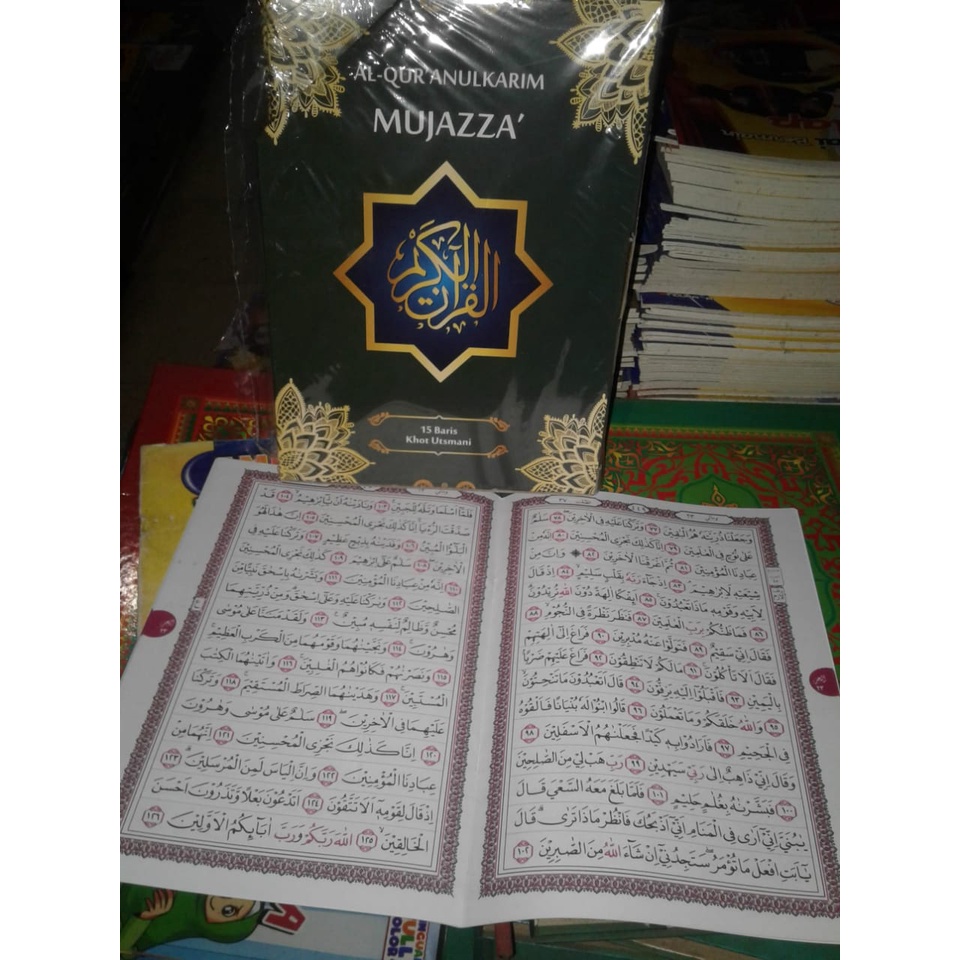 AL-QUR'ANULKARIM
MUJAZZA'
القرآن الكريم
15 Baris
Khot Utsmani
وَجَعَلْنَا ذُرِّيَّتَهُ هُمُ الْبَاقِينَ ٧٧ وَتَرَكْنَا عَلَيْهِ فِي الْآخِرِينَ ٧٨ سَلٰمٌ
عَلٰى نُوحٍ فِي الْعٰلَمِينَ ٧٩ إِنَّا كَذٰلِكَ نَجْزِي الْمُحْسِنِينَ ٨٠ إِنَّهُ مِنْ
عِبَادِنَا الْمُؤْمِنِينَ ٨١ ثُمَّ أَغْرَقْنَا الْآخَرِينَ ٨٢ ۞ وَإِنَّ مِنْ
شِيعَتِهِ لَإِبْرٰهِيمَ ٨٣ إِذْ جَاءَ رَبَّهُ بِقَلْبٍ سَلِيمٍ ٨٤ إِذْ قَالَ
لِأَبِيهِ وَقَوْمِهِ مَاذَا تَعْبُدُونَ ٨٥ أَئِفْكًا آلِهَةً دُونَ اللّٰهِ تُرِيدُونَ
٨٦ فَمَا ظَنُّكُمْ بِرَبِّ الْعٰلَمِينَ ٨٧ فَنَظَرَ نَظْرَةً فِي النُّجُومِ ٨٨
فَقَالَ إِنِّي سَقِيمٌ ٨٩ فَتَوَلَّوْا عَنْهُ مُدْبِرِينَ ٩٠ فَرَاغَ إِلٰى آلِهَتِهِمْ
فَقَالَ أَلَا تَأْكُلُونَ ٩١ مَا لَكُمْ لَا تَنْطِقُونَ ٩٢ فَرَاغَ عَلَيْهِمْ ضَرْبًا
بِالْيَمِينِ ٩٣ فَأَقْبَلُوا إِلَيْهِ يَزِفُّونَ ٩٤ قَالَ أَتَعْبُدُونَ مَا تَنْحِتُونَ
٩٥ وَاللّٰهُ خَلَقَكُمْ وَمَا تَعْمَلُونَ ٩٦ قَالُوا ابْنُوا لَهُ بُنْيَانًا فَأَلْقُوهُ
فِي الْجَحِيمِ ٩٧ فَأَرَادُوا بِهِ كَيْدًا فَجَعَلْنٰهُمُ الْأَسْفَلِينَ ٩٨
وَقَالَ إِنِّي ذَاهِبٌ إِلٰى رَبِّي سَيَهْدِينِ ٩٩ رَبِّ هَبْ لِي مِنَ الصّٰلِحِينَ
١٠٠ فَبَشَّرْنٰهُ بِغُلٰمٍ حَلِيمٍ ١٠١ فَلَمَّا بَلَغَ مَعَهُ السَّعْيَ قَالَ
يٰبُنَيَّ إِنِّي أَرٰى فِي الْمَنَامِ أَنِّي أَذْبَحُكَ فَانْظُرْ مَاذَا تَرٰى قَالَ
يٰأَبَتِ افْعَلْ مَا تُؤْمَرُ سَتَجِدُنِي إِنْ شَاءَ اللّٰهُ مِنَ الصّٰبِرِينَ ١٠٢
فَلَمَّا أَسْلَمَا وَتَلَّهُ لِلْجَبِينِ ١٠٣ وَنَادَيْنٰهُ أَنْ يٰإِبْرٰهِيمُ ١٠٤ قَدْ
صَدَّقْتَ الرُّءْيَا إِنَّا كَذٰلِكَ نَجْزِي الْمُحْسِنِينَ ١٠٥ إِنَّ هٰذَا لَهُوَ
الْبَلٰؤُا الْمُبِينُ ١٠٦ وَفَدَيْنٰهُ بِذِبْحٍ عَظِيمٍ ١٠٧ وَتَرَكْنَا عَلَيْهِ فِي
الْآخِرِينَ ١٠٨ سَلٰمٌ عَلٰى إِبْرٰهِيمَ ١٠٩ كَذٰلِكَ نَجْزِي الْمُحْسِنِينَ
١١٠ إِنَّهُ مِنْ عِبَادِنَا الْمُؤْمِنِينَ ١١١ وَبَشَّرْنٰهُ بِإِسْحٰقَ نَبِيًّا مِنَ
الصّٰلِحِينَ ١١٢ وَبٰرَكْنَا عَلَيْهِ وَعَلٰى إِسْحٰقَ وَمِنْ ذُرِّيَّتِهِمَا
مُحْسِنٌ وَظَالِمٌ لِنَفْسِهِ مُبِينٌ ١١٣ وَلَقَدْ مَنَنَّا عَلٰى مُوسٰى
وَهٰرُونَ ١١٤ وَنَجَّيْنٰهُمَا وَقَوْمَهُمَا مِنَ الْكَرْبِ الْعَظِيمِ
١١٥ وَنَصَرْنٰهُمْ فَكَانُوا هُمُ الْغٰلِبِينَ ١١٦ وَآتَيْنٰهُمَا الْكِتٰبَ
الْمُسْتَبِينَ ١١٧ وَهَدَيْنٰهُمَا الصِّرَاطَ الْمُسْتَقِيمَ ١١٨ وَتَرَكْنَا
عَلَيْهِمَا فِي الْآخِرِينَ ١١٩ سَلٰمٌ عَلٰى مُوسٰى وَهٰرُونَ
١٢٠ إِنَّا كَذٰلِكَ نَجْزِي الْمُحْسِنِينَ ١٢١ إِنَّهُمَا مِنْ
عِبَادِنَا الْمُؤْمِنِينَ ١٢٢ وَإِنَّ إِلْيَاسَ لَمِنَ الْمُرْسَلِينَ ١٢٣
إِذْ قَالَ لِقَوْمِهِ أَلَا تَتَّقُونَ ١٢٤ أَتَدْعُونَ بَعْلًا وَتَذَرُونَ أَحْسَنَ
الْخَالِقِينَ ١٢٥ اللّٰهَ رَبَّكُمْ وَرَبَّ آبَائِكُمُ الْأَوَّلِينَ ١٢٦